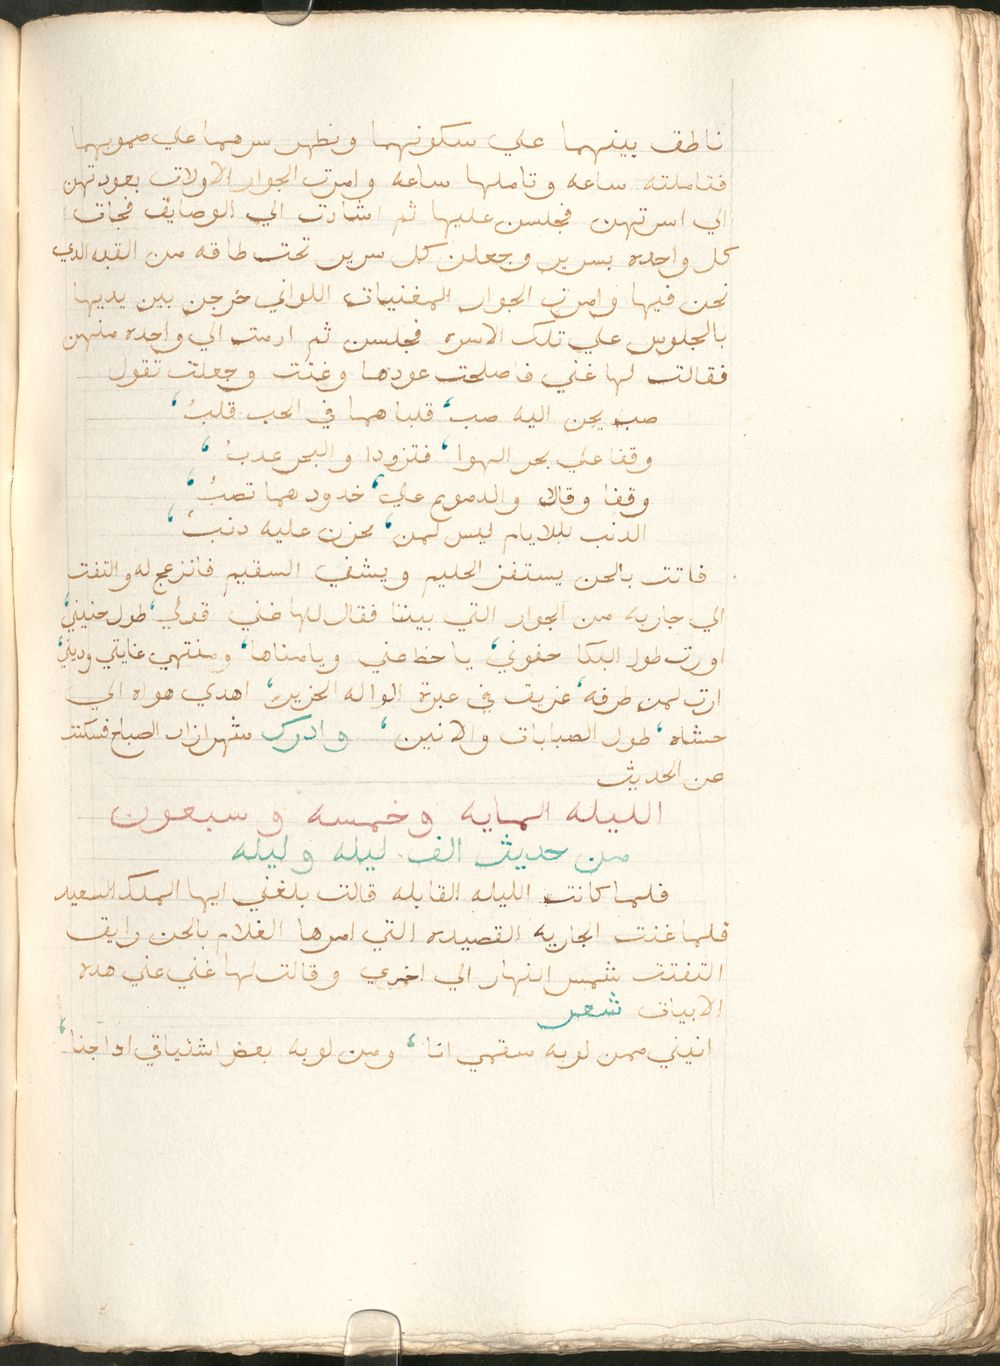 ناطق بينهما علي سكونهما ونظهر سرهما علي صموبهما
فتاملته ساعه وتاملها ساعه وامرت الجوار الاولات بعودتهن
الي اسرتهن فجلسن عليها ثم اشارت الي الوصايف فجات
كل واحده بسرير وجعلن كل سرير تحت طاقه من القبه الدي
نحن فيها وامرت الجوار المغنيات اللواتي خرجن بين يديها
بالجلوس علي تلك الاسره فجلسن ثم ارمت الي واحده منهن
فقالت لها غني فاصلحت عودها وغنت وجعلت تقول
صب يحن اليه صب، قلباهما في الحب قلبُ،
وقفا علي بحر الهوا، فتزودا والبحر عدبُ،
وقفا وقالا والدموع علي، خدودهما تصبُ،
الدنب للايام ليس لمن، محزن عليه دنبُ،
فاتت بالحن يستفز الحليم ويشفي السقيم فانزعج له والتفت
الي جاريه من الجوار التي بيننا فقال لها غني قولي، طول حنيني،
اورت طول البكا جفوني، يا حظ مني ويا مناها، ومنتهي غايتي وديني،
ارت لمن طرفه، غريق في عبرة الواله الحزين، اهدي هواه الي
حشاه، طول الصبابات والانين، وادرك شهرازاد الصباح فسكتت
عن الحديث
الليله المايه وخمسه وسبعون
من حديث الف ليله وليله
فلما كانت الليله القابله قالت بلغني ايها الملك السعيد
فلما غنت الجاريه القصيده التي امرها الغلام بالحن رايق
التفتت شمس النهار الي اخري وقالت لها غني عني هده
الابيات شعر
انيني ممن لو به سقمي انا، ومن لو به بعض اشتياقي اداجنا،